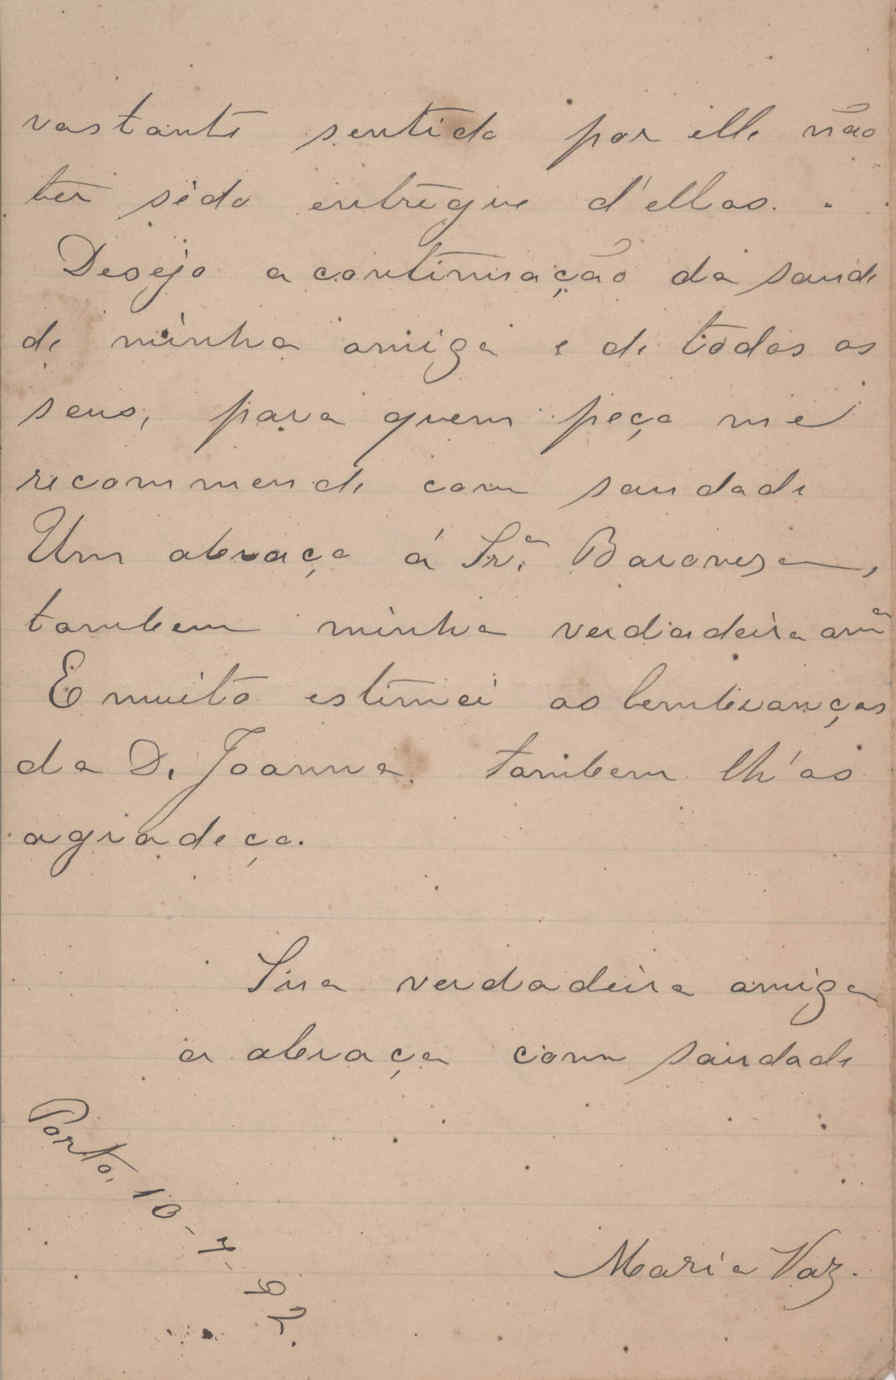 vastante sentido por elle não
ter sido entregue d'ellas.
Desejo a continuação da saude
de minha amiga e de todos os
seus, para quem peço me
recommende com saudade
Um abraço á Sr.ª Baroneza,
tambem minha verdadeira amª
E muito estimei as lembranças
da D. Joanna. tambem lh'as
agradeço.
Sua verdadeira amiga
a abraça com saudade
Maria Vaz.
Porto, 10-